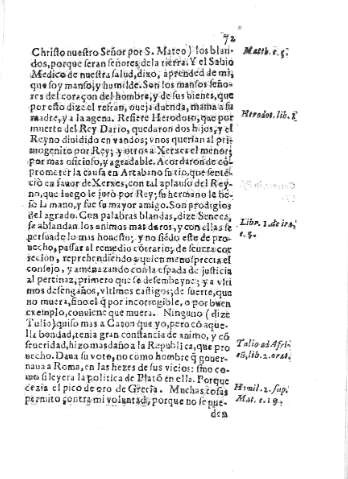 72
Christo nuestro Señor por S. Mateo) los blan-
dos, porque seran señores de la tierra. Y el Sabio
Medico de nuestra salud, dixo, aprended de mi,
que soy manso, y humilde. Son los mansos seño-
res del coraçon del hombre, y de sus bienes, que
por esto dize el refran, oueja duenda, mama a su
madre, y a la agena. Refiere Herodoto, que por
muerte del Rey Dario, quedaron dos hijos, y el
Reyno diuidido en vandos; vnos querian al pri-
mogenito por Rey; y otros a Xerxes el menor;
por mas oficioso, y agradable. Acordaron de cō-
prometer la causa en Artabano su tio, que sentē-
ciò en fauor de Xerxes, con tal aplauso del Rey-
no, que luego le jurò por Rey; su hermano le be-
sò la mano, y fue su mayor amigo. Son prodigios
del agrado. Con palabras blandas, dize Seneca,
se ablandan los animos mas duros, y con ellas se
persuade lo mas honesto; y no siēdo este de pro-
uecho, passar al remedio cōtrario; de
cion, reprehendiendo a quien menosprecia el
consejo, y amenazando con la espada de justicia
al pertinaz, primero que se desembayne; y a vlti
mos desengaños, vltimos castigos; de suerte, que
no muera, sino el q̄ por incorregible, o por buen
exemplo, conuiene que muera. Ninguno (dize
Tulio) quiso mas a Caton que yo, pero cō aque-
lla bondad, tenia gran constancia de animo, y cō
seueridad, hizo mas daño a la Republica, que pro
uecho. Daua su voto, no como hombre q̄ gouer-
naua a Roma, en las hezes de sus vicios: sino co-
mo si leyera la politica de Platō en ella. Porque
dezia el pico de oro de Grecia. Muchas cosas
permito contra mi voluntad, porque no se pue-
den
Matth. c. 5.
Herodos. lib.
Libr. 1. de ira,
c. 5.
Tulio ad
lib. 2.
Homil. 2. sup.
Mat. c. 19.